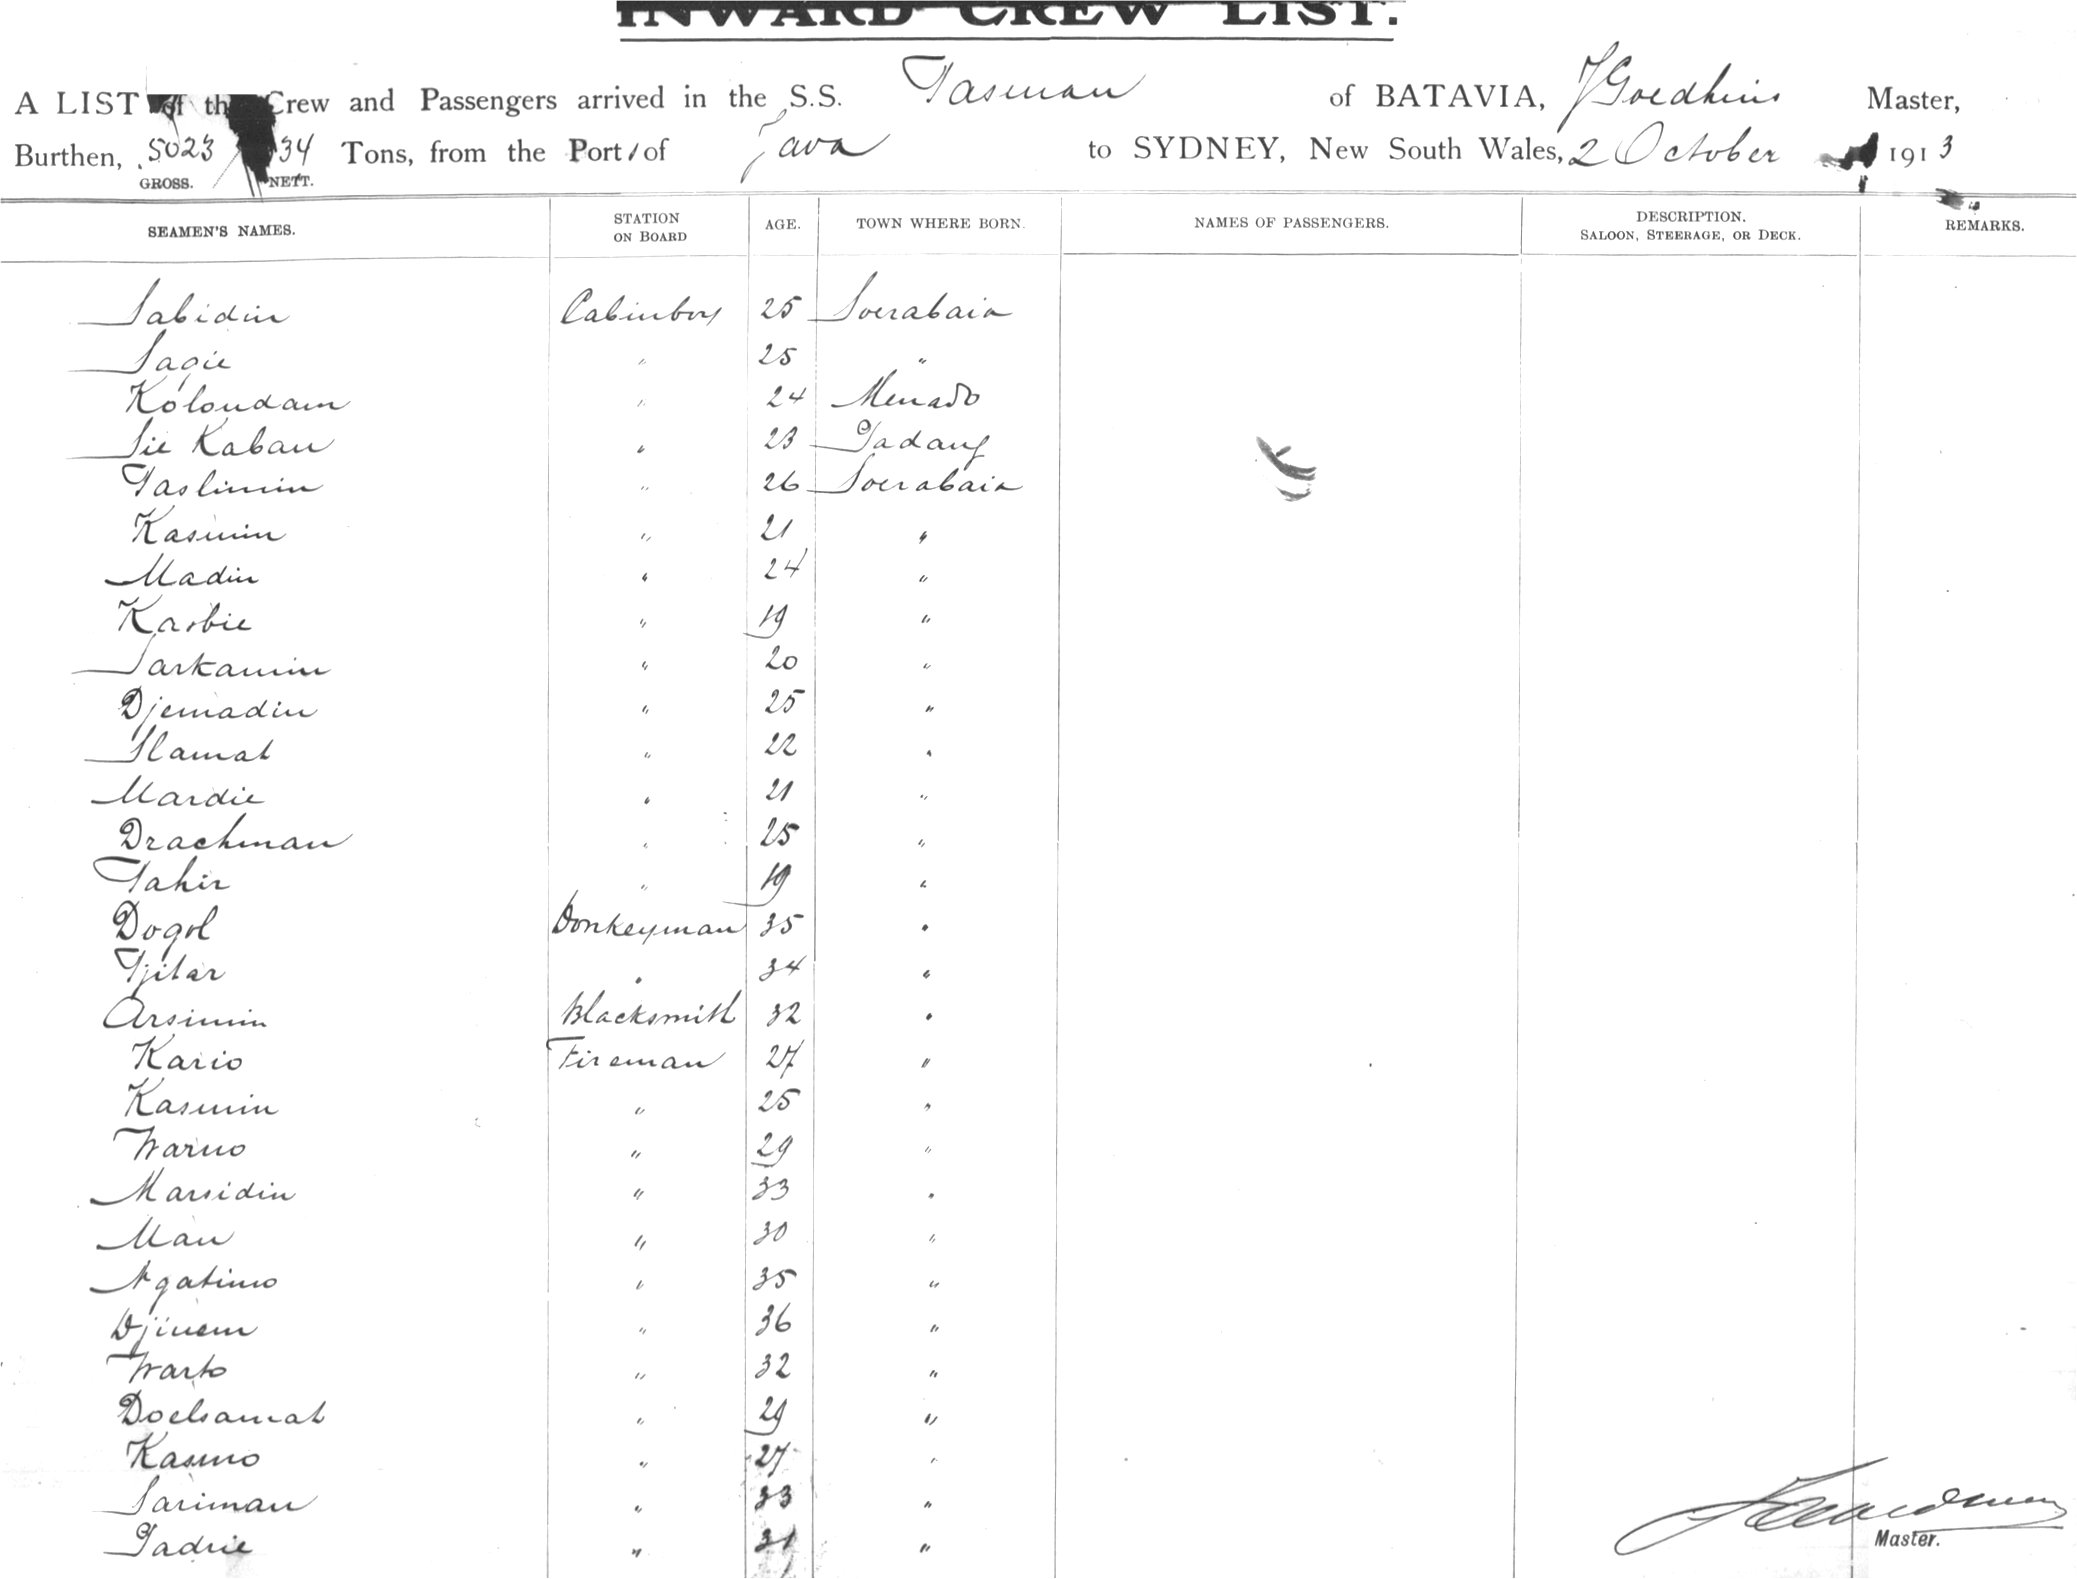 INWARD CREW LIST.
A LIST of the Crew and Passengers arrived in the S.S. Tasman of BATAVIA, Master,
Burthen, 5023 34 Tons, from the Port of Java to SYDNEY, New South Wales, 2 October 1913
GROSS. NETT.
SEAMEN'S NAMES. STATION ON BOARD AGE. TOWN WHERE BORN. NAMES OF PASSENGERS. DESCRIPTION. SALOON, STEERAGE, OR DECK. REMARKS.
Sabidin Cabinboy 25 Soerabaia
Sagie " 25 "
Koloudam " 24 Menado
Sie Kaban " 23 Padang
Taslimin " 26 Soerabaia
Kasmin " 21 "
Madin " 24 "
Karbie " 19 "
Sarkamin " 20 "
Djemadin " 25 "
Slamat " 22 "
Mardie " 21 "
Drachman " 25 "
Tahir " 19 "
Dogol Donkeyman 35 "
Tjitar " 34 "
Arsimin Blacksmith 32 "
Kario Fireman 27 "
Kasmin " 25 "
Warno " 29 "
Marsidin " 33 "
Man " 30 "
Ngatimo " 35 "
Djinem " 36 "
Warto " 32 "
Doelsamat " 29 "
Kasmo " 27 "
Sariman " 33 "
Padrie " 31 "
Master.